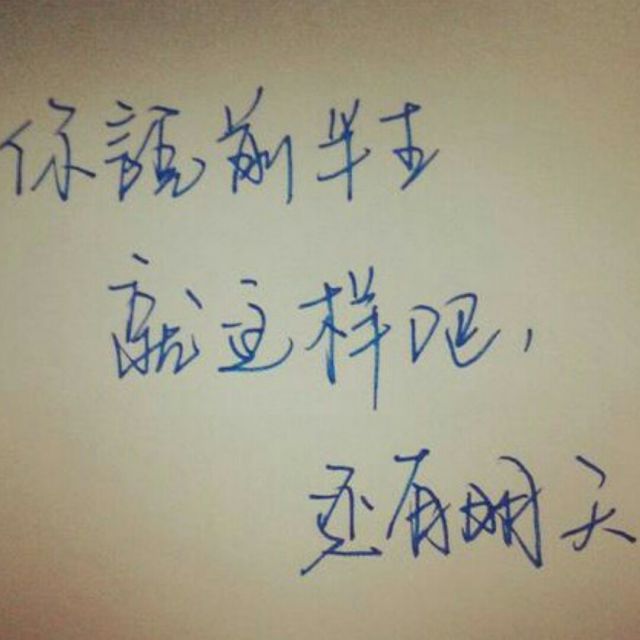 你話前半生
就这样吧,
还有明天